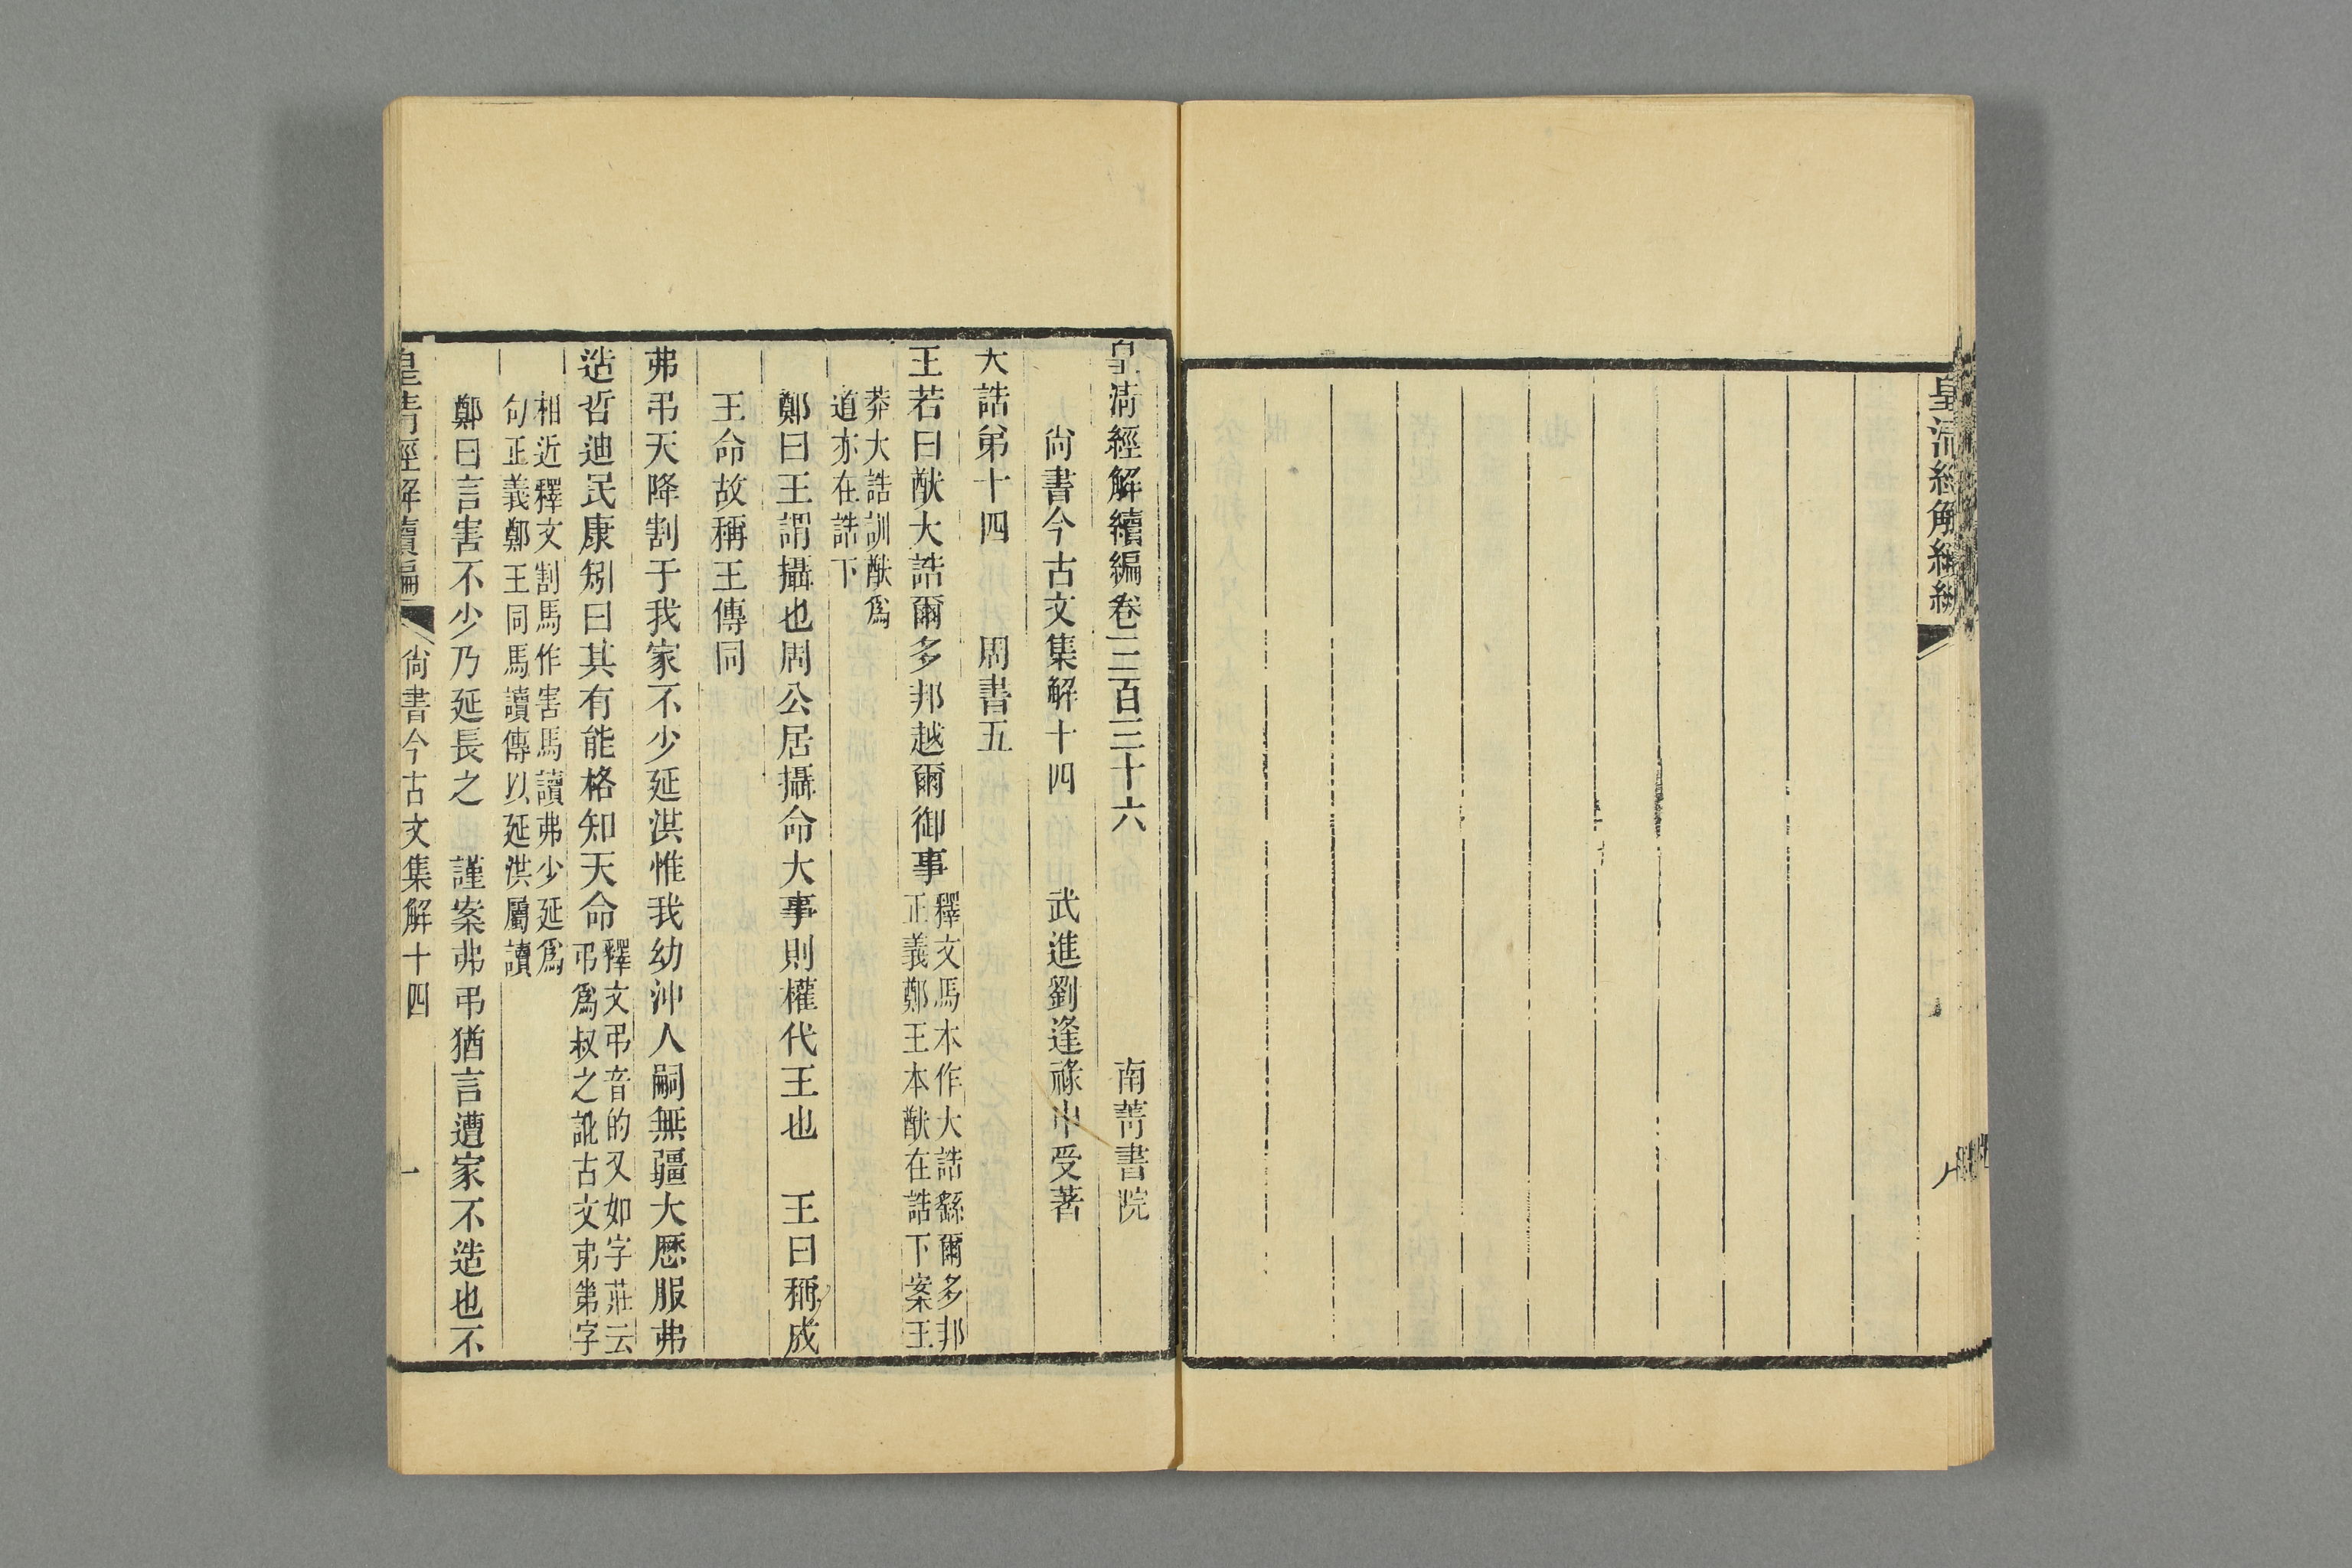 皇清經解續編
八
皇清經解續編卷三百三十六
南菁書院
尙書今古文集解十四
武進劉逢祿申受著
大誥弟十四 周書五
王若曰猷大誥爾多邦越爾御事
釋文馬本作大誥繇爾多邦
正義鄭王本猷在誥下案王
莽大誥訓猷爲
道亦在誥下
鄭曰王謂攝也周公居攝命大事則權代王也 王曰稱成
王命故稱王傳同
弗弔天降割于我家不少延洪惟我幼沖人嗣無疆大歷服弗
造哲迪民康矧曰其有能格知天命
釋文弔音的又如字莊云
弔爲叔之訛古文弔第字
相近釋文割馬作害馬讀弗少延爲
句正義鄭王同馬讀傳以延洪屬讀
鄭曰言害不少乃延長之 謹案弗弔猶言遭家不造也不
皇清經解續編
尙書今古文集解十四
一